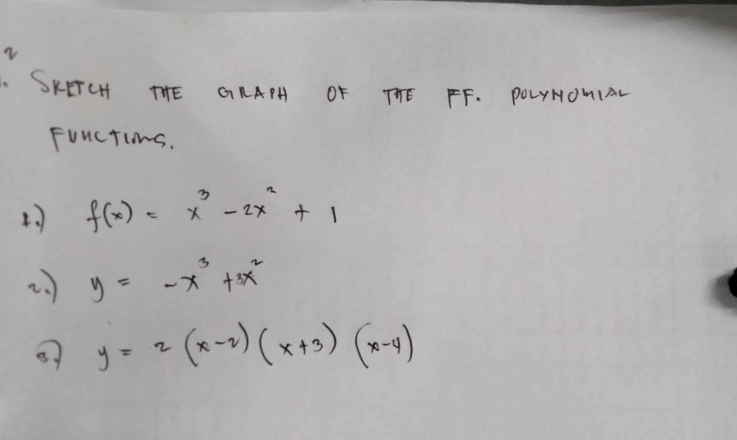 2
. SKETCH THE GRAPH OF THE FF. POLYNOMIAL
FUNCTIONS.
1.) f(x) = x³ - 2x² + 1
2.) y = -x³ + 3x²
3.) y = 2 (x-2) (x+3) (x-4)